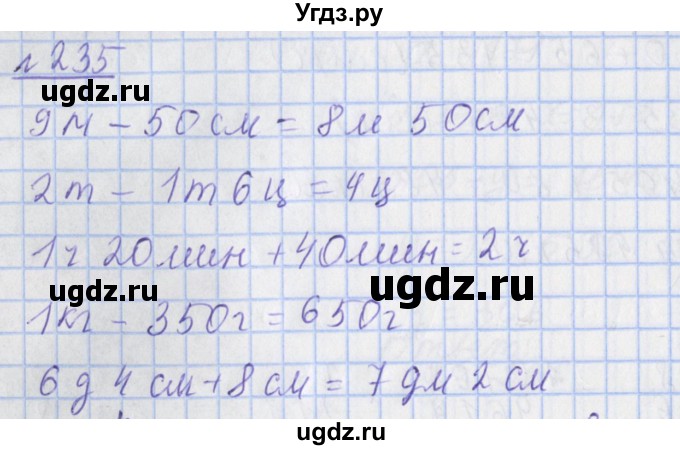 Угдз.ру
№ 235
ugdz.ru
9 м – 50 см = 8 м 50 см
2 т – 1 т 6 ц = 4 ц
1 ч 20 мин + 40 мин = 2 ч
ugdz.ru
ugdz.ru
1 кг – 350 г = 650 г
ugdz.ru
6 д 4 см + 8 см = 7 дм 2 см
ugdz.ru